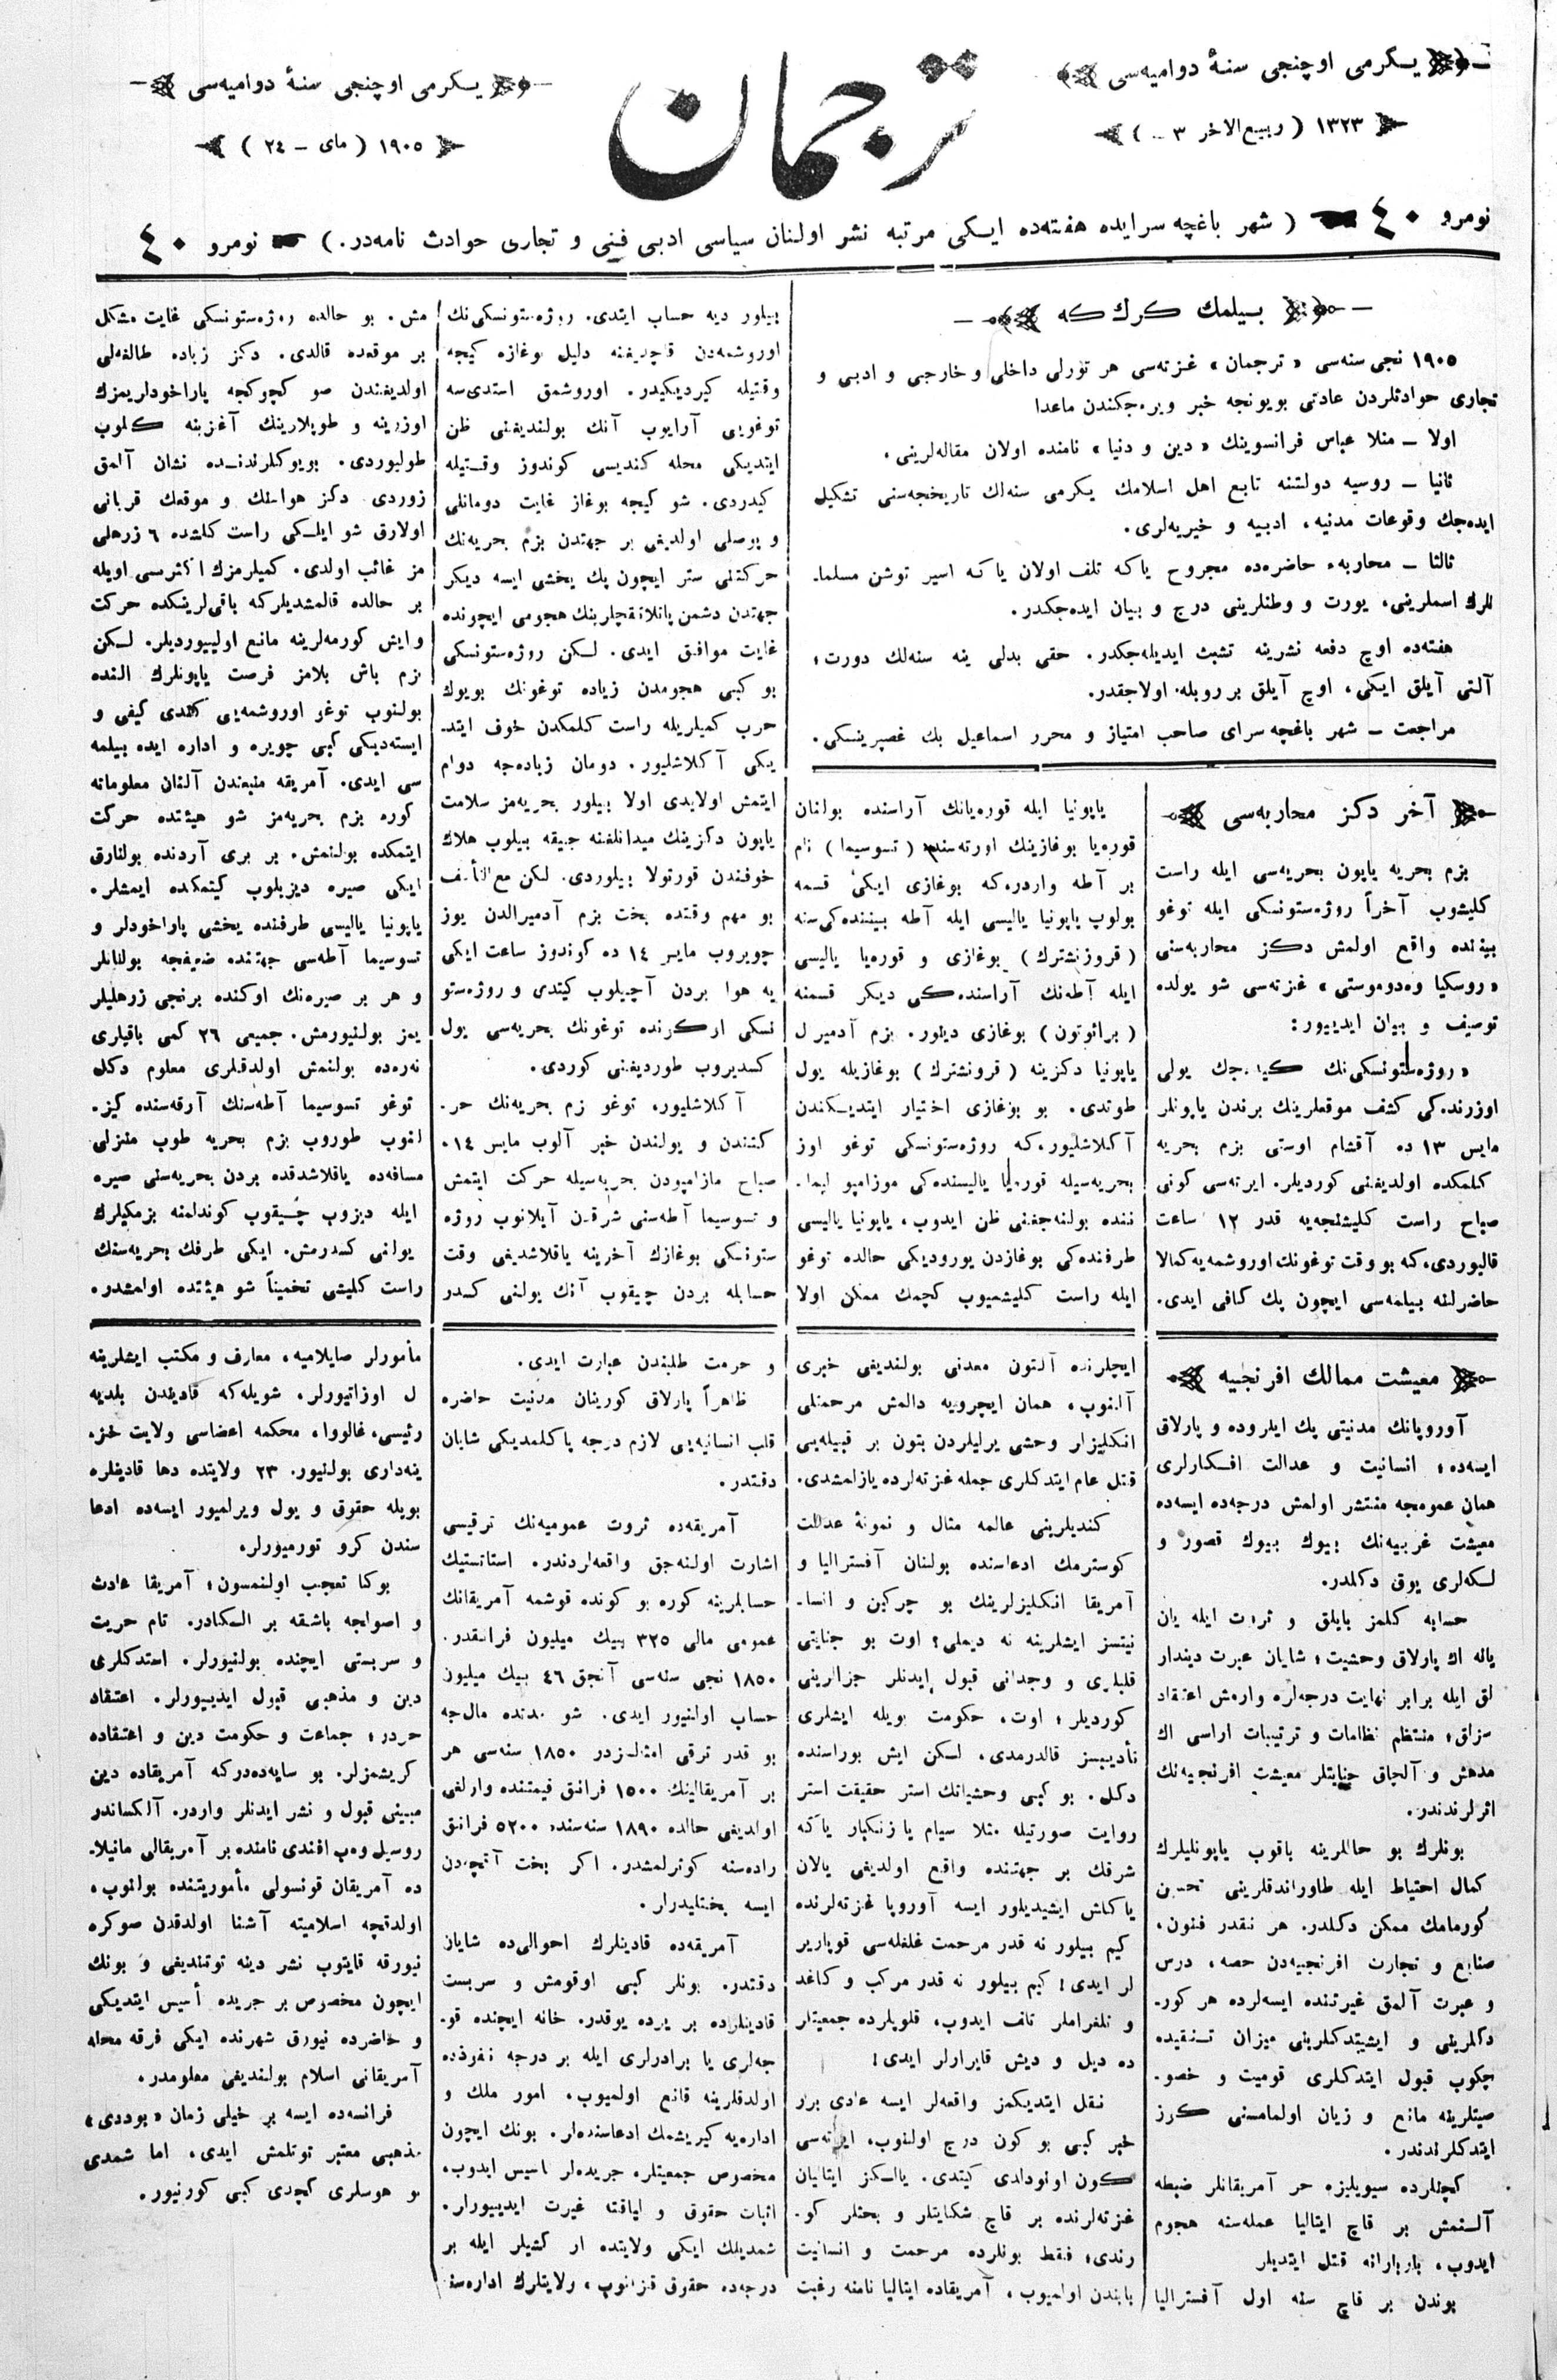 یکرمی اوچنجی سنۀ دوامیه‌سی
١٣٢٣ ( ربیع الاخر ٣ - )
ترجمان
یکرمی اوچنجی سنۀ دوامیه‌سی
١٩٠٥ ( مای - ٢٤ )
نومرو ٤٠ ( شهر باغچه سرایده هفته‌ده ایکی مرتبه نشر اولنان سیاسی ادبی فنی و تجاری حوادث نامه‌در. ) نومرو ٤٠
بیلمك كرك كه
١٩٠٥ نجی سنه‌سی «ترجمان» غزته‌سی هر تورلی داخلی و خارجی و ادبی و
تجاری حوادثلردن عادتی بویونجه خبر ویره‌جکندن ماعدا
اولا ـ منلا عباس فرانسوینك «دین و دنیا» نامنده اولان مقاله‌لرینی.
ثانیا ـ روسیه دولتنه تابع اهل اسلامك یکرمی سنه‌لك تاریخچه‌سنی تشکیل
ایده‌جك وقوعات مدنیه، ادبیه و خیریه‌لری.
ثالثا ـ محاربهء حاضره‌ده مجروح یاکه تلف اولان یاکه اسیر توشن مسلما.
نلرك اسملرینی، یورت و وطنلرینی درج و بیان ایده‌جکدر.
هفته‌ده اوچ دفعه نشرینه تشبث ایدیله‌جکدر. حقی بدلی ینه سنه‌لك دورت؛
آلتی آیلق ایکی، اوچ آیلق بر روبله اولاجقدر.
مراجعت ـ شهر باغچه سرای صاحب امتیاز و محرر اسماعیل بك غصپرینسکی.
آخر دکز محاربه‌سی
بزم بحریه یاپون بحریه‌سی ایله راست
کلیشوب آخراً روژه‌ستونسکی ایله توغو
بیننده واقع اولمش دکز محاربه‌سنی
«روسکیا وه‌دوموستی» غزته‌سی شو یولده
توصیف و بیان ایدییور:
«روژه‌ستونسکی‌نك کیده‌جك یولی
اوزرنده‌کی کشف موقعلرینك برندن یاپونلر
مایس ١٣ ده آقشام اوستی بزم بحریه
کلمکده اولدیغنی کوردیلر. ایرته‌سی کونی
صباح راست کلیشنجه‌یه قدر ١٢ ساعت
قالیوردی، که بو وقت توغونك اوروشمه‌یه کمالا
حاضرلنه بیلمه‌سی ایچون پك کافی ایدی.
یاپونیا ایله قوره‌یانك آراسنده بولنان
قوره‌یا بوغازینك اورته‌سنده (تسوسیما) نام
بر آطه واردرکه بوغازی ایکی قسمه
بولوب یاپونیا یالیسی ایله آطه بیننده‌کی‌سنه
(قروزنشترك) بوغازی و قوره‌یا یالیسی
ایله آطه‌نك آراسنده‌کی دیکر قسمنه
(برائوتون) بوغازی دینور. بزم آدمیرل
یاپونیا دکزینه (قرونشترك) بوغازیله یول
طوتدی. بو بوغازی اختیار ایتدیکندن
آکلاشلیور، که روژه‌ستونسکی توغو اوز
بحریه‌سیله قوره‌یا یالیسنده‌کی موزامپو لیما.
ننده بولنه‌جغنی ظن ایدوب، یاپونیا یالیسی
طرفنده‌کی بوغازدن یورودیکی حالده توغو
ایله راست کلیشمیوب کچمك ممکن اولا
بیلور دیه حساب ایتدی. روژه‌ستونسکی‌نك
اوروشمه‌دن قاچدیغنه دلیل بوغازه کیجه
وقتیله کیردیکیدر. اوروشمق استدی‌سه
توغویی آرایوب آنك بولندیغنی ظن
ایتدیکی محله کندیسی کوندوز وقتیله
کیدردی. شو کیجه بوغاز غایت دومانلی
و پوصلی اولدیغی بر جهتدن بزم بحریه‌نك
حرکتنی ستر ایچون پك یخشی ایسه دیکر
جهتدن دشمن پاتلاتقچلرینك هجومی ایچونده
غایت موافق ایدی. لکن روژه‌ستونسکی
بو کبی هجومدن زیاده توغونك بویوك
حرب کمیلریله راست کلمکدن خوف ایتد.
یکی آکلاشلیور. دومان زیاده‌جه دوام
ایتمش اولایدی اولا بیلور بحریه‌مز سلامت
یاپون دکزینك میدانلغنه چیقه بیلوب هلاك
خوفندن قورتولا بیلوردی. لکن مع التأسف
بو مهم وقتده بخت بزم آدمیرالدن یوز
چویروب مایس ١٤ ده کوندوز ساعت ایکی
یه هوا بردن آچیلوب کیتدی و روژه‌ستو
نسکی ارکرنده توغونك بحریه‌سی یول
کسدیروب طوردیغنی کوردی.
آکلاشلیور، توغو بزم بحریه‌نك حر.
کتندن و یولندن خبر آلوب مایس ١٤.
صباح مازامپودن بحریه‌سیله حرکت ایتمش
و تسوسیما آطه‌سنی شرقدن آیلانوب روژه
ستونسکی بوغازك آخرینه یاقلاشدیغی وقت
حسابله بردن چیقوب آنك یولنی کسدر
مش. بو حالده روژه‌ستونسکی غایت مشکل
بر موقعده قالدی. دکز زیاده طالغه‌لی
اولدیغندن صو کچوکجه پاراخودلریمزك
اوزرینه و طوپلارینك آغزینه کلوب
طولیوردی. بویوکلرندنده نشان آلمق
زوردی. دکز هوانك و موقعك قربانی
اولارق شو ایلکی راست کلشده ٦ زرهلی
مز غائب اولدی. کمیلرمزك اکثریسی اویله
بر حالده قالمشدیلرکه باقی‌لرینکده حرکت
و ایش کورمه‌لرینه مانع اولییوردیلر. لکن
بزم باش بلامز فرصت یاپونلرك النده
بولنوب توغو اوروشمه‌یی کندی کیفی و
ایسته‌دیکی کبی چویره و اداره ایده بیلمه
سی ایدی. آمریقه منبعندن آلنان معلوماته
کوره بزم بحریه‌مز شو هیئتده حرکت
ایتمکده بولنمش. بر بری آردنده بولنارق
ایکی صیره دیزیلوب کیتمکده ایمشلر.
یاپونیا یالیسی طرفنده یخشی پاراخودلر و
تسوسیما آطه‌سی جهتنده ضعیفجه بولنانلر
و هر بر صیره‌نك اوکنده برنجی زرهلیلر
یمز بولنیورمش. جمیعی ٢٦ کمی باقیلری
نه‌ره‌ده بولنمش اولدقلری معلوم دکل
توغو تسوسیما آطه‌سنك آرقه‌سنده کیز.
لنوب طوروب بزم بحریه طوپ منزلی
مسافه‌ده یاقلاشدقده بردن بحریه‌سنی صیره
ایله دیزوب چیقوب کوندلمنه بزمکیلرك
یولنی کسدرمش. ایکی طرفك بحریه‌سنك
راست کلیشی تخمیناً شو هیئتده اولمشدر.
معیشت ممالك افرنجیه
آوروپانك مدنیتی پك ایلروده و پارلاق
ایسه‌ده؛ انسانیت و عدالت افکارلری
همان عمومجه منتشر اولمش درجه‌ده ایسه‌ده
معیشت غربیه‌نك بیوك بیوك قصور و
لکه‌لری یوق دکلدر.
حسابه کلمز بایلق و ثروت ایله یان
یاله اك پارلاق وحشیت؛ شایان عبرت دیندار
لق ایله برابر نهایت درجه‌لره وارمش اعتقاد
سزلق؛ منتظم نظامات و ترتیبات اراسی اك
مدهش و آلچاق جنایتلر معیشت افرنجیه‌نك
اثرلرندندر.
بونلرك بو حاللرینه باقوب یاپونلیلرك
کمال احتیاط ایله طاوراندقلرینی تحسین
کورمامك ممکن دکلدر. هر نقدر فنون،
صنایع و تجارت افرنجیه‌دن حصه، درس
و عبرت آلمق غیرتنده ایسه‌لرده هر کور.
دکلرینی و ایشیتدکلرینی میزان تنقیده
چکوب قبول ایتدکلری قومیت و خصو.
صیتلرینه مانع و زیان اولمامسنی کرز
ایتدکلرندندر.
کچنلرده سیویلیزه حر آمریقانلر ضبطه
آلنمش بر قاچ ایتالیا عمله‌سنه هجوم
ایدوب، بارباراته قتل ایتدیلر
بوندن بر قاچ سنه اول آفسترالیا
ایچلرنده آلتون معدنی بولندیغی خبری
آلنوب، همان ایچرویه دالمش مرحمتلی
انکلیزلر وحشی یرلیلردن بتون بر قبیله‌یی
قتل عام ایتدکلری جمله غزته‌لرده یازلمشدی.
کندیلرینی عالمه مثال و نمونۀ عدالت
کوسترمك ادعاسنده بولنان آفسترالیا و
آمریقا انکلیزلرینك بو چرکین و انسا.
نیتسز ایشلرینه نه دیملی؟ اوت بو جنایتی
قلبلری و وجدانی قبول ایدنلر جزالرینی
کوردیلر؛ اوت، حکومت بویله ایشلری
تأدیبسز قالدرمدی، لکن ایش بوراسنده
دکل. بو کبی وحشیاتك استر حقیقت استر
روایت صورتیله مثلا سیام یا زنکبار یاکه
شرقك بر جهتنده واقع اولدیغی یالان
یاکلش ایشیدیلور ایسه آوروپا غزته‌لرنده
کیم بیلور نه قدر مرحمت غلغله‌سی قوپاریر
لر ایدی! کیم بیلور نه قدر مرکب و کاغد
و تلغراملر تلف ایدوب، قلوپلرده جمعیتلر
ده دیل و دیش قایرارلر ایدی!
نقل ایتدیکمز واقعه‌لر ایسه عادی بزار
خبر کبی بو کون درج اولنوب، ایرته‌سی
کون اونودلدی کیتدی. یالکز ایتالیان
غزته‌لرنده بر قاچ شکایتلر و بحثلر کو.
رندی؛ فقط بونلرده مرحمت و انسانیت
بابندن اولمیوب، آمریقاده ایتالیا نامنه رغبت
و حرمت طلبندن عبارت ایدی.
ظاهراً پارلاق کورینان مدنیت حاضره
قلب انسانیه‌یی لازم درجه پاکلمدیکی شایان
دقتدر.
آمریقه‌ده ثروت عمومیه‌نك ترقیسی
اشارت اولنه‌جق واقعه‌لردندر. استاتستیك
حسابلرینه کوره بو کونده قوشمه آمریقانك
عمومی مالی ٣٢٥ بیك میلیون فرانقدر.
١٨٥٠ نجی سنه‌سی آنجق ٤٦ بیك میلیون
حساب اولنیور ایدی. شو مدتده مالجه
بو قدر ترقی امثالسزدر ١٨٥٠ سنه‌سی هر
بر آمریقالینك ١٥٠٠ فرانق قیمتنده وارلغی
اولدیغی حالده ١٨٩٠ سنه‌سنده ٥٢٠٠ فرانق
راده‌سنه کوترلمشدر. اکر بخت آقچه‌دن
ایسه بختلیدرلر.
آمریقه‌ده قادینلرك احوالی‌ده شایان
دقتدر. بونلر کبی اوقومش و سربست
قادینلرده بر یرده یوقدر. خانه ایچنده قو.
جه‌لری یا برادرلری ایله بر درجه نفوذده
اولدقلرینه قانع اولمیوب، امور ملك و
اداره‌یه کیریشمك ادعاسنده‌لر. بونك ایچون
مخصوص جمعیتلر، جریده‌لر تاسیس ایدوب،
اثبات حقوق و لیاقته غیرت ایدییورلر.
شمدیلك ایکی ولایتده ار کشیلر ایله بر
درجه‌ده حقوق قزانوب، ولایتلرك اداره‌سنه
مأمورلر صایلامیه، معارف و مکتب ایشلرینه
ال اوزاتیورلر. شویله‌که قادیندن بلدیه
رئیسی، غالووا، محکمه اعضاسی ولایت خز.
ینه‌داری بولنیور. ٢٣ ولایتده دها قادینلره
بویله حقوق و یول ویرلمیور ایسه‌ده ادعا
سندن کرو تورمیورلر.
بوکا تعجب اولنمسون؛ آمریقا عادت
و اصولجه باشقه بر الکادر. تام حریت
و سربستی ایچنده بولنیورلر. استدکلری
دین و مذهبی قبول ایدییورلر. اعتقاد
حردر؛ جماعت و حکومت دین و اعتقاده
کریشمزلر. بو سایه‌ده‌درکه آمریقاده دین
مبینی قبول و نشر ایدنلر واردر. آلکساندر
روسیل وه‌ب افندی نامنده بر آمریقالی مانیلا.
ده آمریقان قونسولی مأموریتنده بولنوب،
اولدقچه اسلامیته آشنا اولدقدن صوکره
نیورقه قایتوب نشر دینه توتندیغی و بونك
ایچون مخصوص بر جریده تأسیس ایتدیکی
و حاضرده نیورق شهرنده ایکی فرقه محله
آمریقانی اسلام بولندیغی معلومدر.
فرانسه‌ده ایسه بر خیلی زمان «بوددی»
مذهبی معتبر توتلمش ایدی، اما شمدی
بو هوسلری کچدی کبی کورنیور.